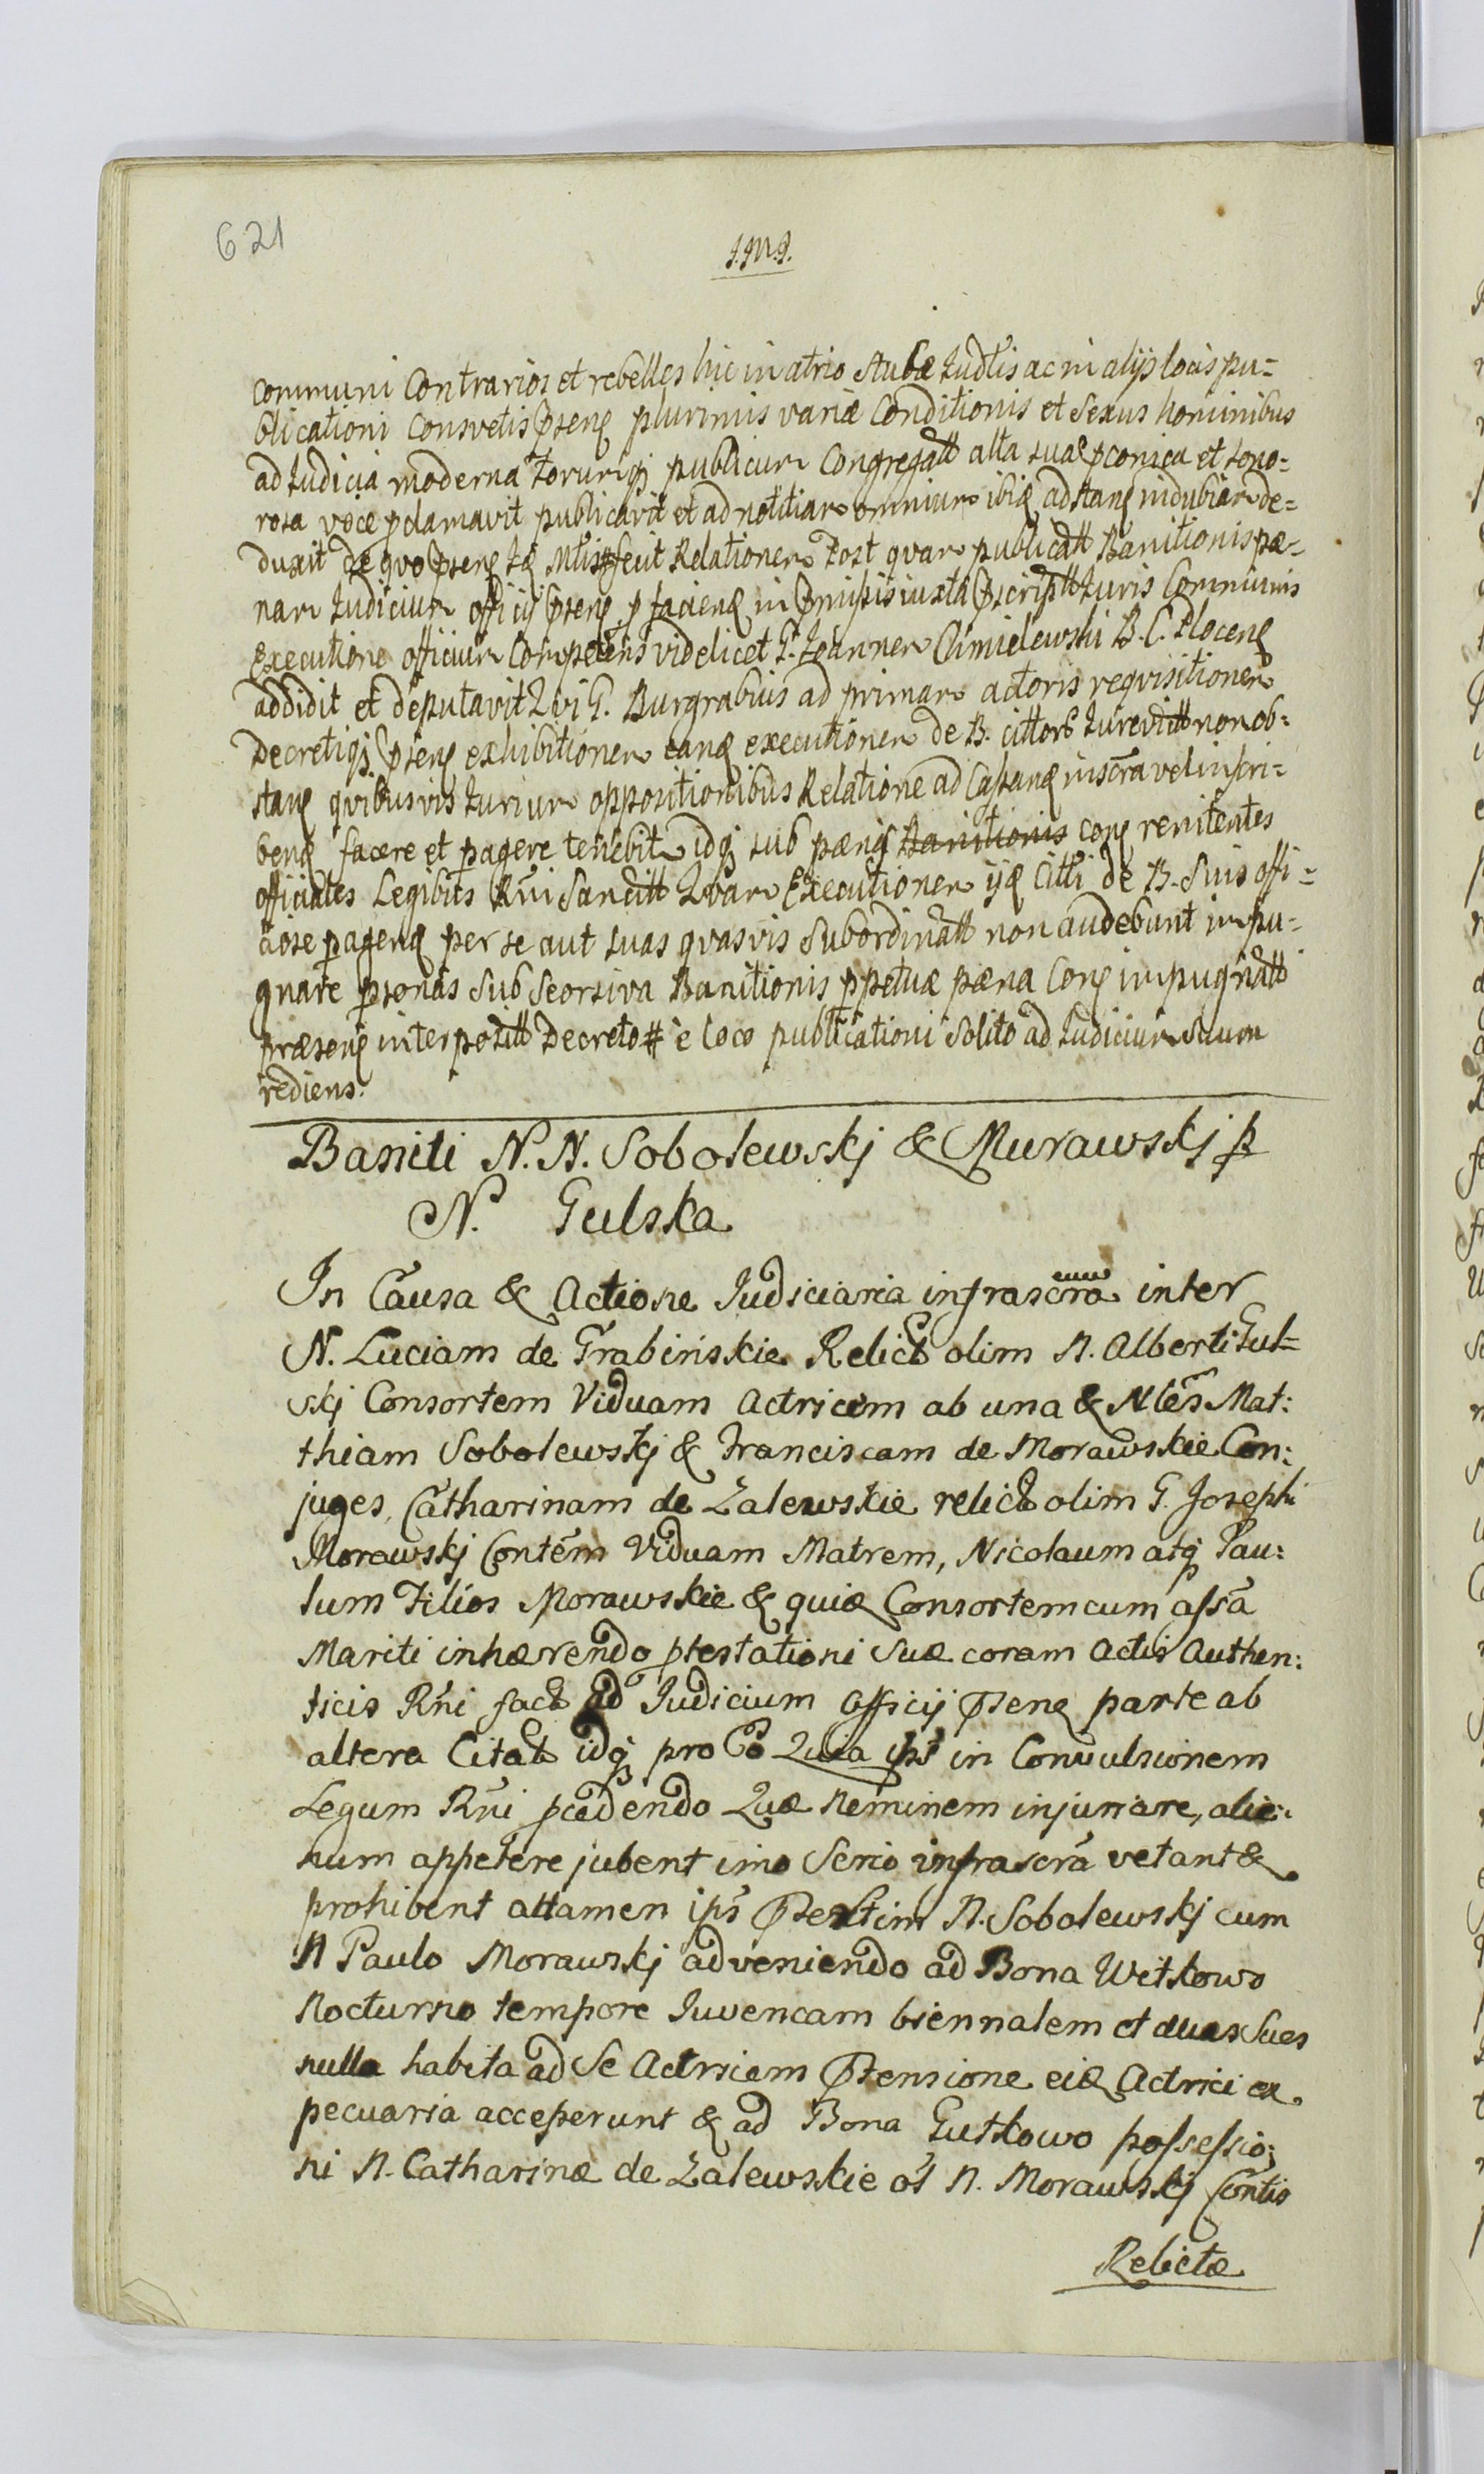 621
J.M.J.
communi Contrarios et rebelles hic in atrio Stubæ Judlis ac in alijs locis pu=
blicationi Consvetis pseng plurimis variæ Conditionis et Sexus hominibus
ad Judicia moderna Forumq publicum Congregatt alta sua pconica et sono=
rosa voce pclamavit publicavit et ad notitiam omnium ibiq adstang indubiam de=
duxit De quo pseng fecit Relationem Post quam publicatt Banitionis pæ=
nam Judicium officij pseng p facienq in pmissis iuxta pscriptt Juris Communis
Executione officium Competens videlicet G. Joannem Chmielewski B. C. Plocenq
addidit et deputavit Qvi G. Burgrabius ad primam actoris reqvisitionem
Decretiq pseng exhibitionem eanq executionem de B. cittors Jurevictt non ob=
stanq qvibusvis Jurium oppositionibus Relatione ad Castanq inscra vel inscri=
benq facere et pagere tenebit idq sub pænis Banitionis conq renitentes
officiales Legibus Rni Sancitt Qvam Executionem ijq Citti de B. Suis offi=
ciose pagenq per se aut suas qvasvis Subordinatt non audebunt impu=
gnare psonas Sub Seorsiva Banitionis ppetuæ pæna Conq impugnatt
præsenq interpositt Decreto # e loco publicationi Solito ad Judicium Suum
rediens.
Baniti N. N. Sobolewskj & Murawskj p
N. Gulska
In Causa & Actione Judiciaria infrascra inter
N. Luciam de Grabinskie Relict olim N. Alberti Gul=
skj Consortem Viduam Actricem ab una & Nles Mat:
thiam Sobolewskj & Franciscam de Morawskie Con:
juges, Catharinam de Zalewskie relict olim G. Josephi
Morawskj Contem Viduam Matrem, Nicolaum atq Pau:
lum Filios Morawskie & quiq Consortem cum assa
Mariti inhærendo ptestationi Suæ coram Actis Authen:
ticis Rni fact ad Judicium Officij psenq parte ab
altera Citat idq pro Eo Quia ips in Convulsionem
Legum Rni pcedendo Quæ Neminem injuriare, alie:
num appetere jubent imo Serio infrascra vetant &
prohibent attamen ips psertim N. Sobolewskj cum
N Paulo Morawskj adveniendo ad Bona Witkowo
Nocturno tempore Juvencam biennalem et duas Sues
nulla habita ad Se Actricem ptensione eiq Actrici ex
pecuaria acceperunt & ad Bona Gutkowo possessio:
ni N. Catharinæ de Zalewskie ol N. Morawskj Contis
Relictæ